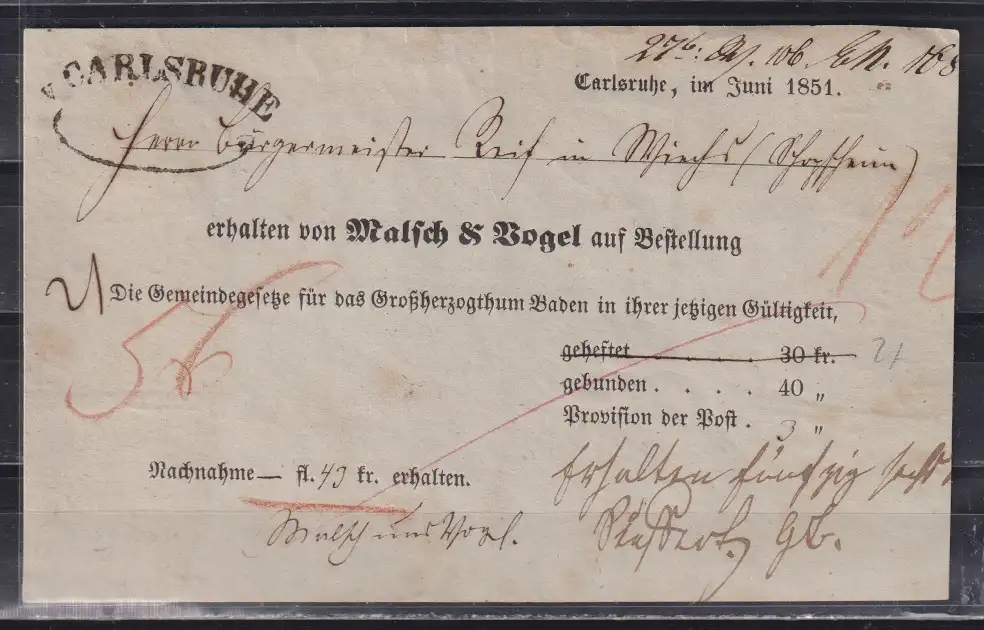 CARLSRUHE
Carlsruhe, im Juni 1851.
Herrn Bürgermeister Reif in Wiechs (Schopfheim)
erhalten von Malsch & Vogel auf Bestellung
Die Gemeindegesetze für das Großherzogthum Baden in ihrer jetzigen Gültigkeit,
geheftet . . . . . 30 kr.
gebunden . . . . 40 „
Provision der Post . 3 „
Nachnahme — fl. 43 kr. erhalten.
Erhalten fünfzig sechs
Malsch und Vogel.